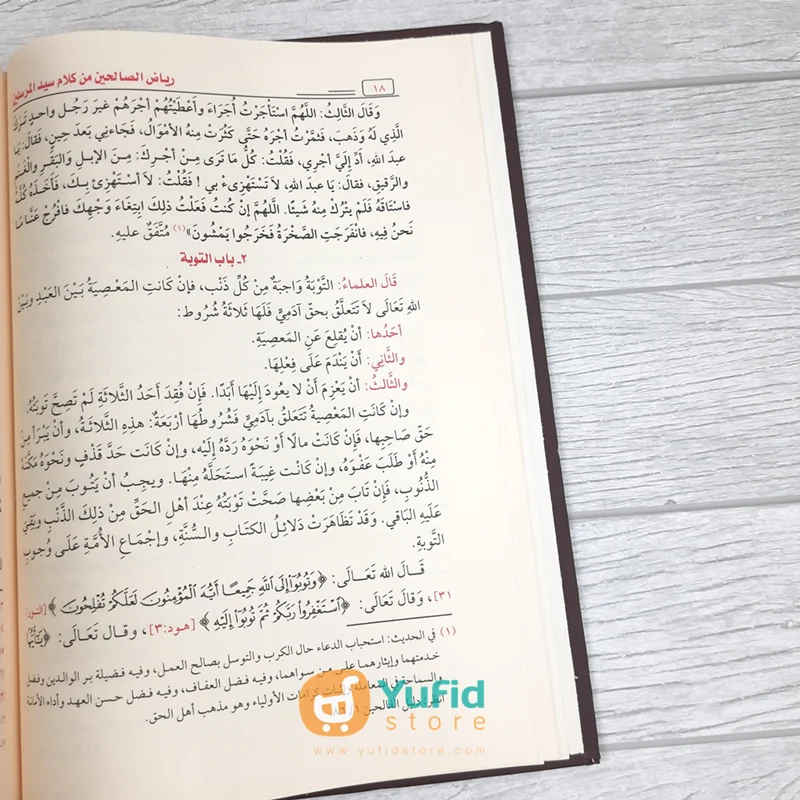 ١٨
رياض الصالحين من كلام سيد المرسلين
وَقَالَ الثَّالِثُ: اللَّهُمَّ اسْتَأْجَرْتُ أُجَرَاءَ وَأَعْطَيْتُهُمْ أَجْرَهُمْ غَيرَ رَجُلٍ وَاحِدٍ تَرَكَ
الَّذِي لَهُ وَذَهَبَ، فَثَمَّرْتُ أَجْرَهُ حَتَّى كَثُرَتْ مِنهُ الأَمْوَالُ، فَجَاءَنِي بَعدَ حِينٍ، فَقَالَ: يَا
عبدَ اللهِ، أَدِّ إِلَيَّ أَجْرِي، فَقُلْتُ: كُلُّ مَا تَرَى مِنْ أَجرِكَ: مِنَ الإِبلِ وَالبَقَرِ والْغَنَمِ
والرَّقيقِ، فقالَ: يَا عبدَ اللهِ، لَا تَسْتَهْزِىءْ بي! فَقُلْتُ: لاَ أَسْتَهْزِئ بِكَ، فَأَخَذَهُ كُلَّهُ
فاسْتَاقَهُ فَلَمْ يَتْرُكْ مِنهُ شَيئًا. اللَّهُمَّ إِنْ كُنتُ فَعَلْتُ ذلِكَ ابتِغَاءَ وَجْهِكَ فافْرُجْ عَنَّا مَا
نَحنُ فِيهِ، فانْفَرَجَتِ الصَّخْرَةُ فَخَرَجُوا يَمْشُونَ» (١) مُتَّفَقٌ عليهِ.
٢ـ باب التوبة
قَالَ العلماءُ: التَّوْبَةُ وَاجبَةٌ مِنْ كُلِّ ذَنْبٍ، فإنْ كَانَتِ المَعْصِيَةُ بَيْنَ العَبْدِ وبَيْنَ
اللهِ تَعَالَى لاَ تَتَعلَّقُ بحقّ آدَمِيٍّ فَلَهَا ثَلاثَةُ شُرُوط:
أحَدُها: أنْ يُقلِعَ عَنِ المَعصِيَةِ.
والثَّانِي: أَنْ يَنْدَمَ عَلَى فِعْلِهَا.
والثَّالثُ: أنْ يَعْزِمَ أَنْ لا يعُودَ إِلَيْهَا أَبَدًا. فَإِنْ فُقِدَ أَحَدُ الثَّلاثَةِ لَمْ تَصِحَّ تَوبَتُهُ.
وإنْ كَانَتِ المَعْصِيةُ تَتَعَلقُ بآدَمِيٍّ فَشُرُوطُهَا أرْبَعَةٌ: هذِهِ الثَّلاثَةُ، وأنْ يَبْرَأ مِنْ
حَقِّ صَاحِبِها، فَإنْ كَانَتْ مالًا أَوْ نَحْوَهُ رَدَّهُ إِلَيْه، وإنْ كَانَت حَدَّ قَذْفٍ ونَحْوَهُ مَكَّنَهُ
مِنْهُ أَوْ طَلَبَ عَفْوَهُ، وإنْ كَانْت غِيبَةً استَحَلَّهُ مِنْهَا. ويجِبُ أنْ يَتُوبَ مِنْ جميعِ
الذُّنُوبِ، فَإِنْ تَابَ مِنْ بَعْضِها صَحَّتْ تَوْبَتُهُ عِنْدَ أهْلِ الحَقِّ مِنْ ذلِكَ الذَّنْبِ وبَقِيَ
عَلَيهِ البَاقي. وَقَدْ تَظَاهَرَتْ دَلائِلُ الكتَابِ والسُّنَّةِ، وإجْمَاعِ الأُمَّةِ عَلَى وُجوبِ
التَّوبةِ.
قَالَ الله تَعَالَى: ﴿وَتُوبُوٓا۟ إِلَى ٱللَّهِ جَمِيعًا أَيُّهَ ٱلْمُؤْمِنُونَ لَعَلَّكُمْ تُفْلِحُونَ﴾ [النور:
٣١]، وَقَالَ تَعَالَى: ﴿ٱسْتَغْفِرُوا۟ رَبَّكُمْ ثُمَّ تُوبُوٓا۟ إِلَيْهِ﴾ [هود:٣]، وقال تَعَالَى: ﴿يَٰٓأَيُّهَا
(١) في الحديث: استحباب الدعاء حال الكرب والتوسل بصالح العمل، وفيه فضيلة بر الوالدين وفضل
خدمتهما وإيثارهما على من سواهما، وفيه فضل العفاف، وفيه فضل حسن العهد وأداء الأمانة
والسماحة في المعاملة وإثبات كرامات الأولياء وهو مذهب أهل الحق.
انظر: دليل الفالحين
Yufid
store
www.yufidstore.com